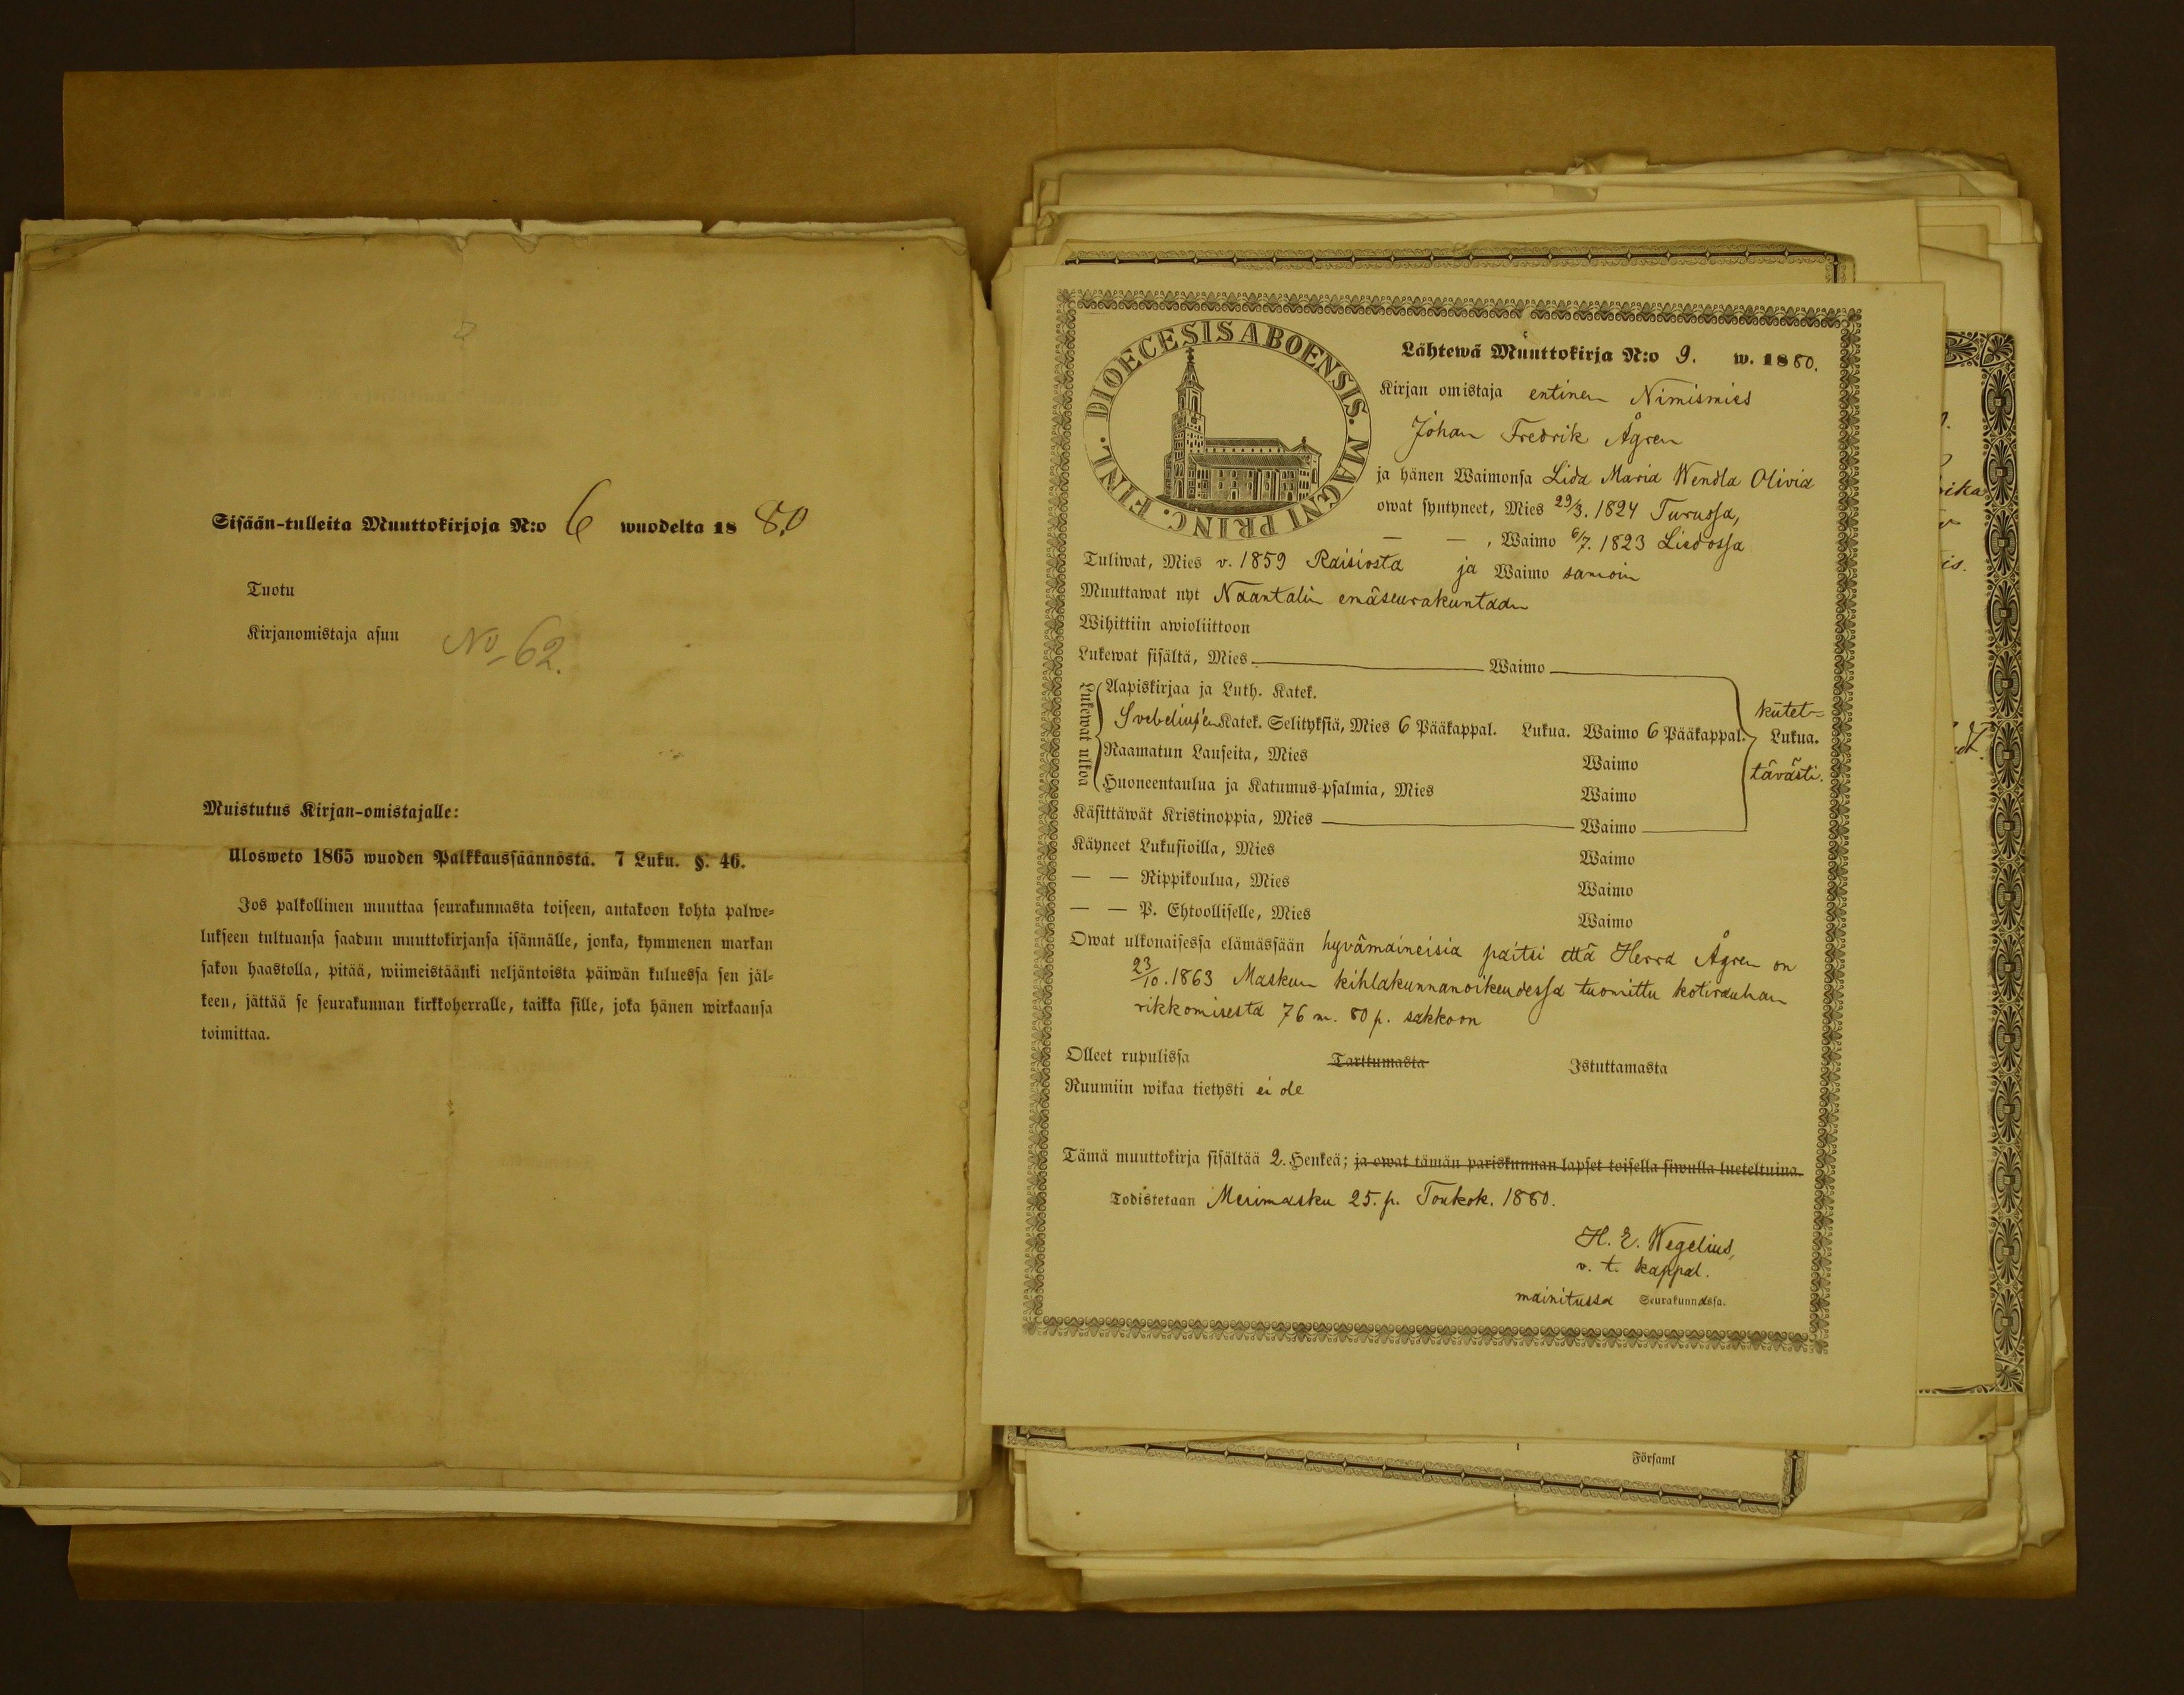 Sisään-tulleita Muuttokirjoja N:o 6 wuodelta 1880
Tuotu
Kirjanomistaja asuu
No 62.
Muistutus Kirjan-omistajalle:
Ulosweto 1865 wuoden Palkkaussäännöstä. 7 Luku. §. 46.
Jos palkollinen muuttaa seurakunnasta toiseen, antakoon kohta palwe=
lukseen tultuansa saadun muuttokirjansa isännälle, jonka, kymmenen markan
sakon haastolla, pitää, wiimeistäänki neljäntoista päiwän kuluessa sen jäl=
keen, jättää se seurakunnan kirkkoherralle, taikka sille, joka hänen wirkaansa
toimittaa.
DIOECESIS ABOENSIS. MAGNI PRINC. FINL.
Lähtewä Muuttokirja N:o 9. w. 1880.
Kirjan omistaja entinen Nimismies
Johan Fredrik Ågren
ja hänen Waimonsa Lisa Maria Wendla Olivia
owat syntyneet, Mies 29/3. 1824 Turussa,
— — , Waimo 6/7. 1823 Liedossa
Tuliwat, Mies v. 1859 Raisiosta ja Waimo samoin
Muuttawat nyt Naantalin emäseurakuntaan
Wihittiin awioliittoon
Lukewat sisältä, Mies Waimo
Lukewat ulkoa
Aapiskirjaa ja Luth. Katek.
Svebelius'en Katek. Selityksiä, Mies 6 Pääkappal. Lukua. Waimo 6 Pääkappal. Lukua.
kiitet=
tävästi.
Raamatun Lauseita, Mies Waimo
Huoneentaulua ja Katumus-psalmia, Mies Waimo
Käsittäwät Kristinoppia, Mies Waimo
Käyneet Lukusioilla, Mies Waimo
— — Rippikoulua, Mies Waimo
— — P. Ehtoolliselle, Mies Waimo
Owat ulkonaisessa elämässään hyvämaineisia paitsi että Herra Ågren on
23/10. 1863 Maskun kihlakunnanoikeudessa tuomittu kotirauhan
rikkomisesta 76 m. 80 p. sakkoon
Olleet rupulissa Tarttumasta Istuttamasta
Ruumiin wikaa tietysti ei ole
Tämä muuttokirja sisältää 2. Henkeä; ja owat tämän pariskunnan lapset toisella siwulla lueteltuina.
Todistetaan Merimasku 25. p. Toukok. 1880.
H. E. Wegelius,
v. t. kappal.
mainitussa Seurakunnassa.
Församl